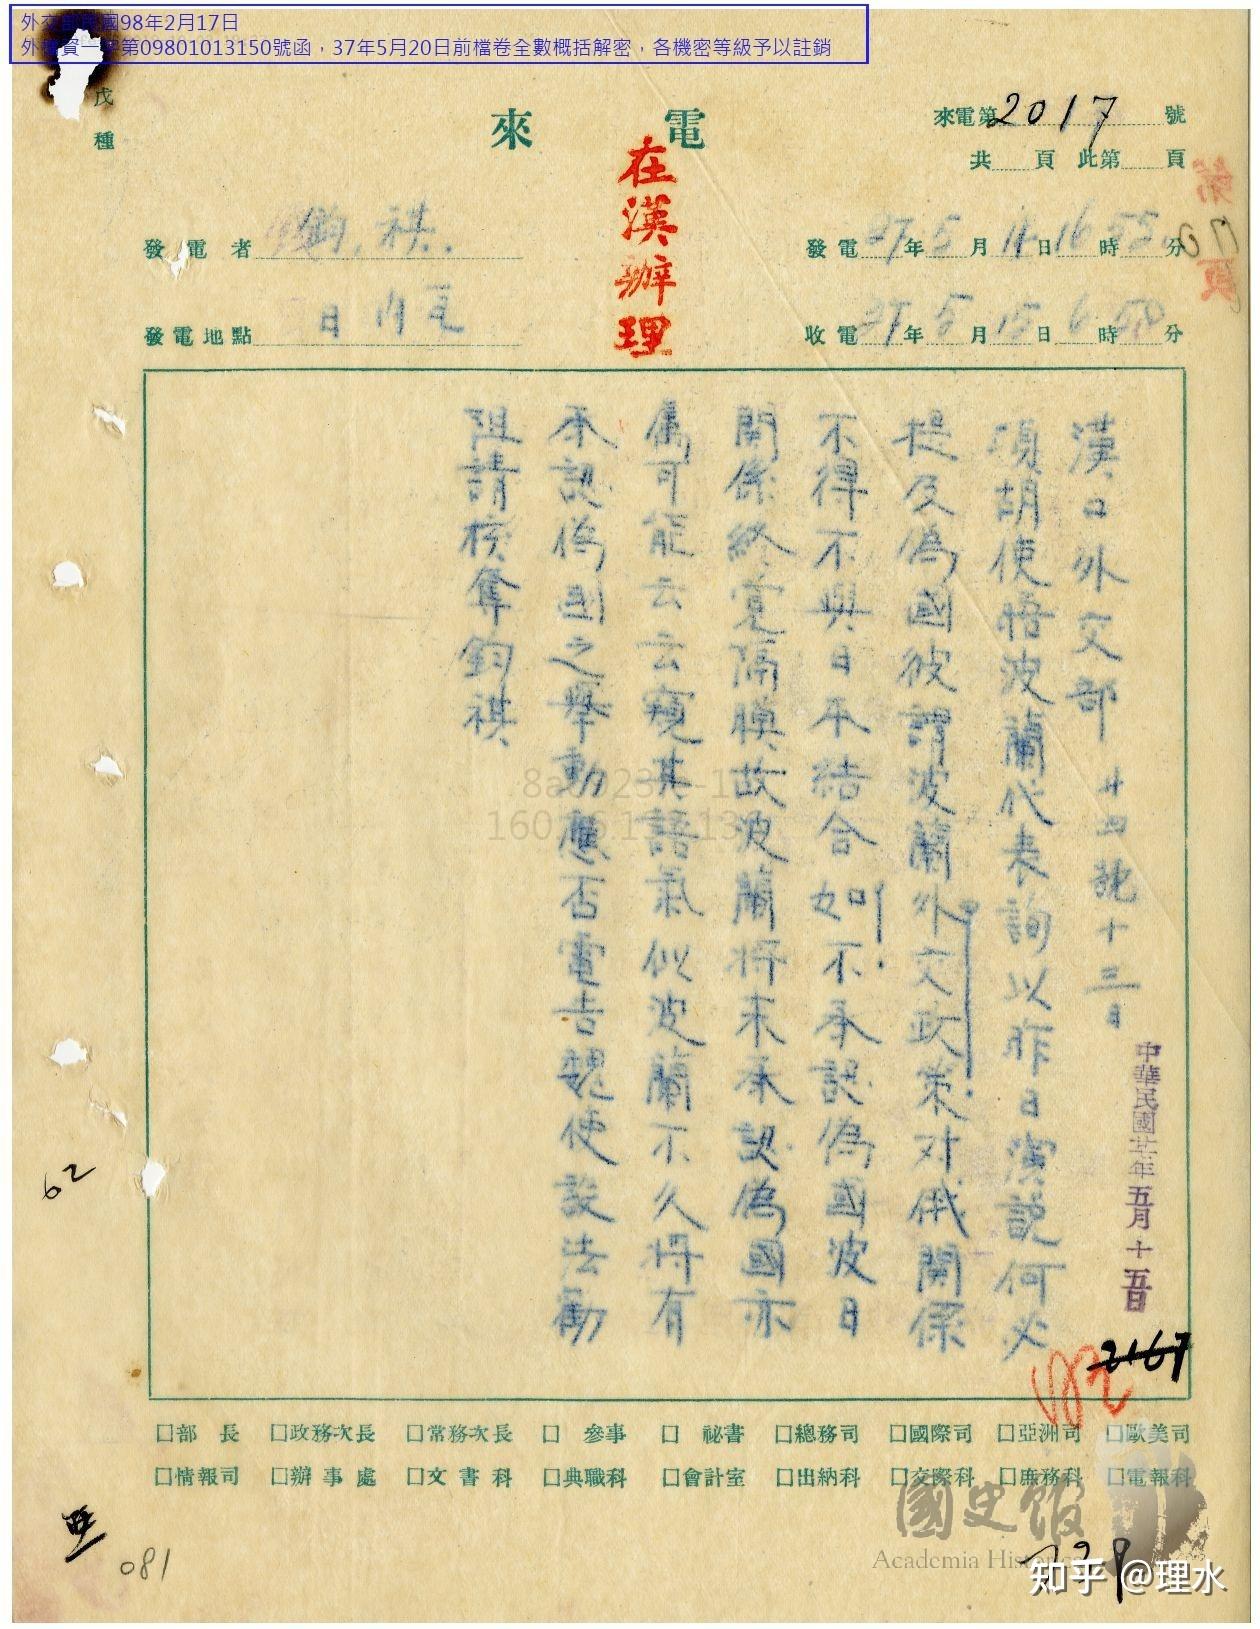 外交部民國98年2月17日
外檔資一字第09801013150號函，37年5月20日前檔卷全數概括解密，各機密等級予以註銷
戊
種
來電
來電第2017號
共 頁 此第 頁
在漢辦理
發電者 鈞,祺.
發電 27年5月14日16時55分
發電地點 日內瓦
收電 27年5月15日6時50分
漢口外交部 廿四號十三日
頃胡使晤波蘭代表詢以昨日演說何必
提及偽國彼謂波蘭外交政策对俄關係
不得不與日本結合如不承認偽國波日
關係終覺隔膜故波蘭將來承認偽國亦
屬可能云云窺其語氣似波蘭不久將有
承認偽國之舉動應否電告魏使設法勸
阻請核奪鈞祺
中華民國廿七年五月十五日
2167
□部長 □政務次長 □常務次長 □參事 □祕書 □總務司 □國際司 □亞洲司 □歐美司
□情報司 □辦事處 □文書科 □典職科 □會計室 □出納科 □交際科 □庶務科 □電報科
62
081
國史館
Academia Historica
知乎 @理水